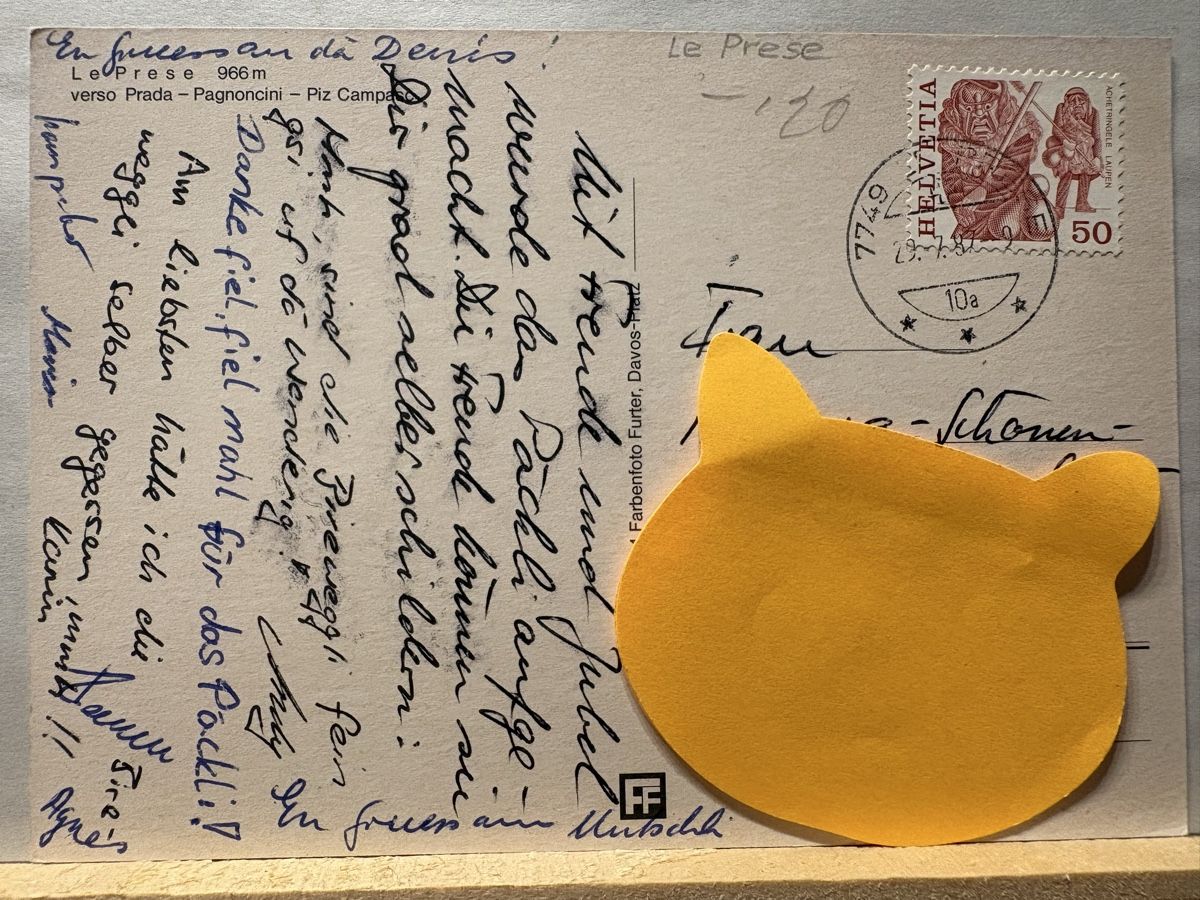 En Gruess au dä Denis!
Le Prese 966 m
verso Prada – Pagnoncini – Piz Campasc
Le Prese
-.20
HELVETIA
ACHETRINGELE LAUPEN
50
7749
29.7.8
10a
Farbenfoto Furter, Davos-Platz
FF
Frau
-Schönen-
Mit Freude und Jubel
wurde das Päckli aufge-
macht. Die Freud können sie
Dir grad selber schildern:
Hmh, sind die Bireweggli fein
gsi uf dä Wanderig!
Danke fiel, fiel mahl für das Päckli!
Am liebsten hätte ich die Bire-
weggli selber gegessen, mmh!!
Karin
Agnes
En Gruess am Mutschli